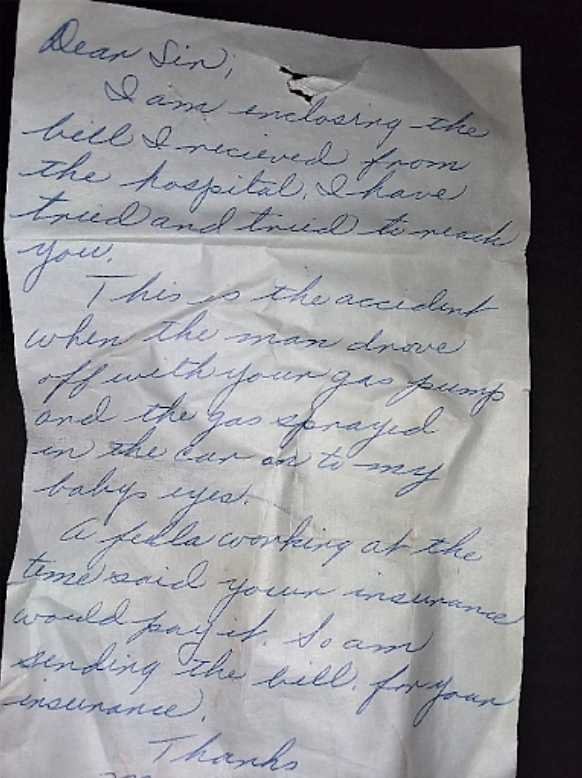 Dear Sir;
I am enclosing the
bill I recieved from
the hospital. I have
tried and tried to reach
you.
This is the accident
when the man drove
off with your gas pump
and the gas sprayed
in the car on to my
babys eyes.
A fella working at the
time said your insurance
would pay it. So am
sending the bill for your
insurance.
Thanks